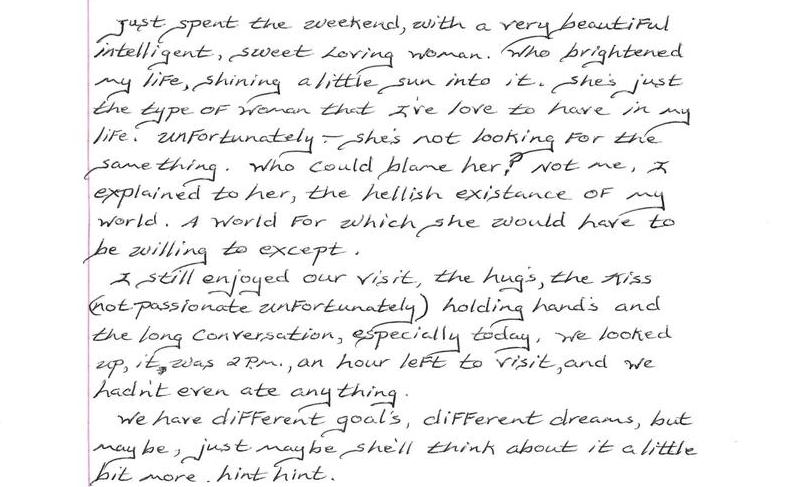 Just spent the weekend, with a very beautiful
intelligent, sweet Loving woman. Who brightened
my life, shining a little sun into it. She's just
the type of woman that I've love to have in my
life. Unfortunately - she's not looking for the
same thing. Who could blame her? Not me, I
explained to her, the hellish existance of my
world. A world for which she would have to
be willing to except.
I still enjoyed our visit, the hug's, the kiss
(not passionate unfortunately) holding hand's and
the long conversation, especially today, we looked
up, it was 2 P.m., an hour left to visit, and we
hadn't even ate any thing.
We have different goal's, different dreams, but
maybe, just maybe she'll think about it a little
bit more. hint hint.